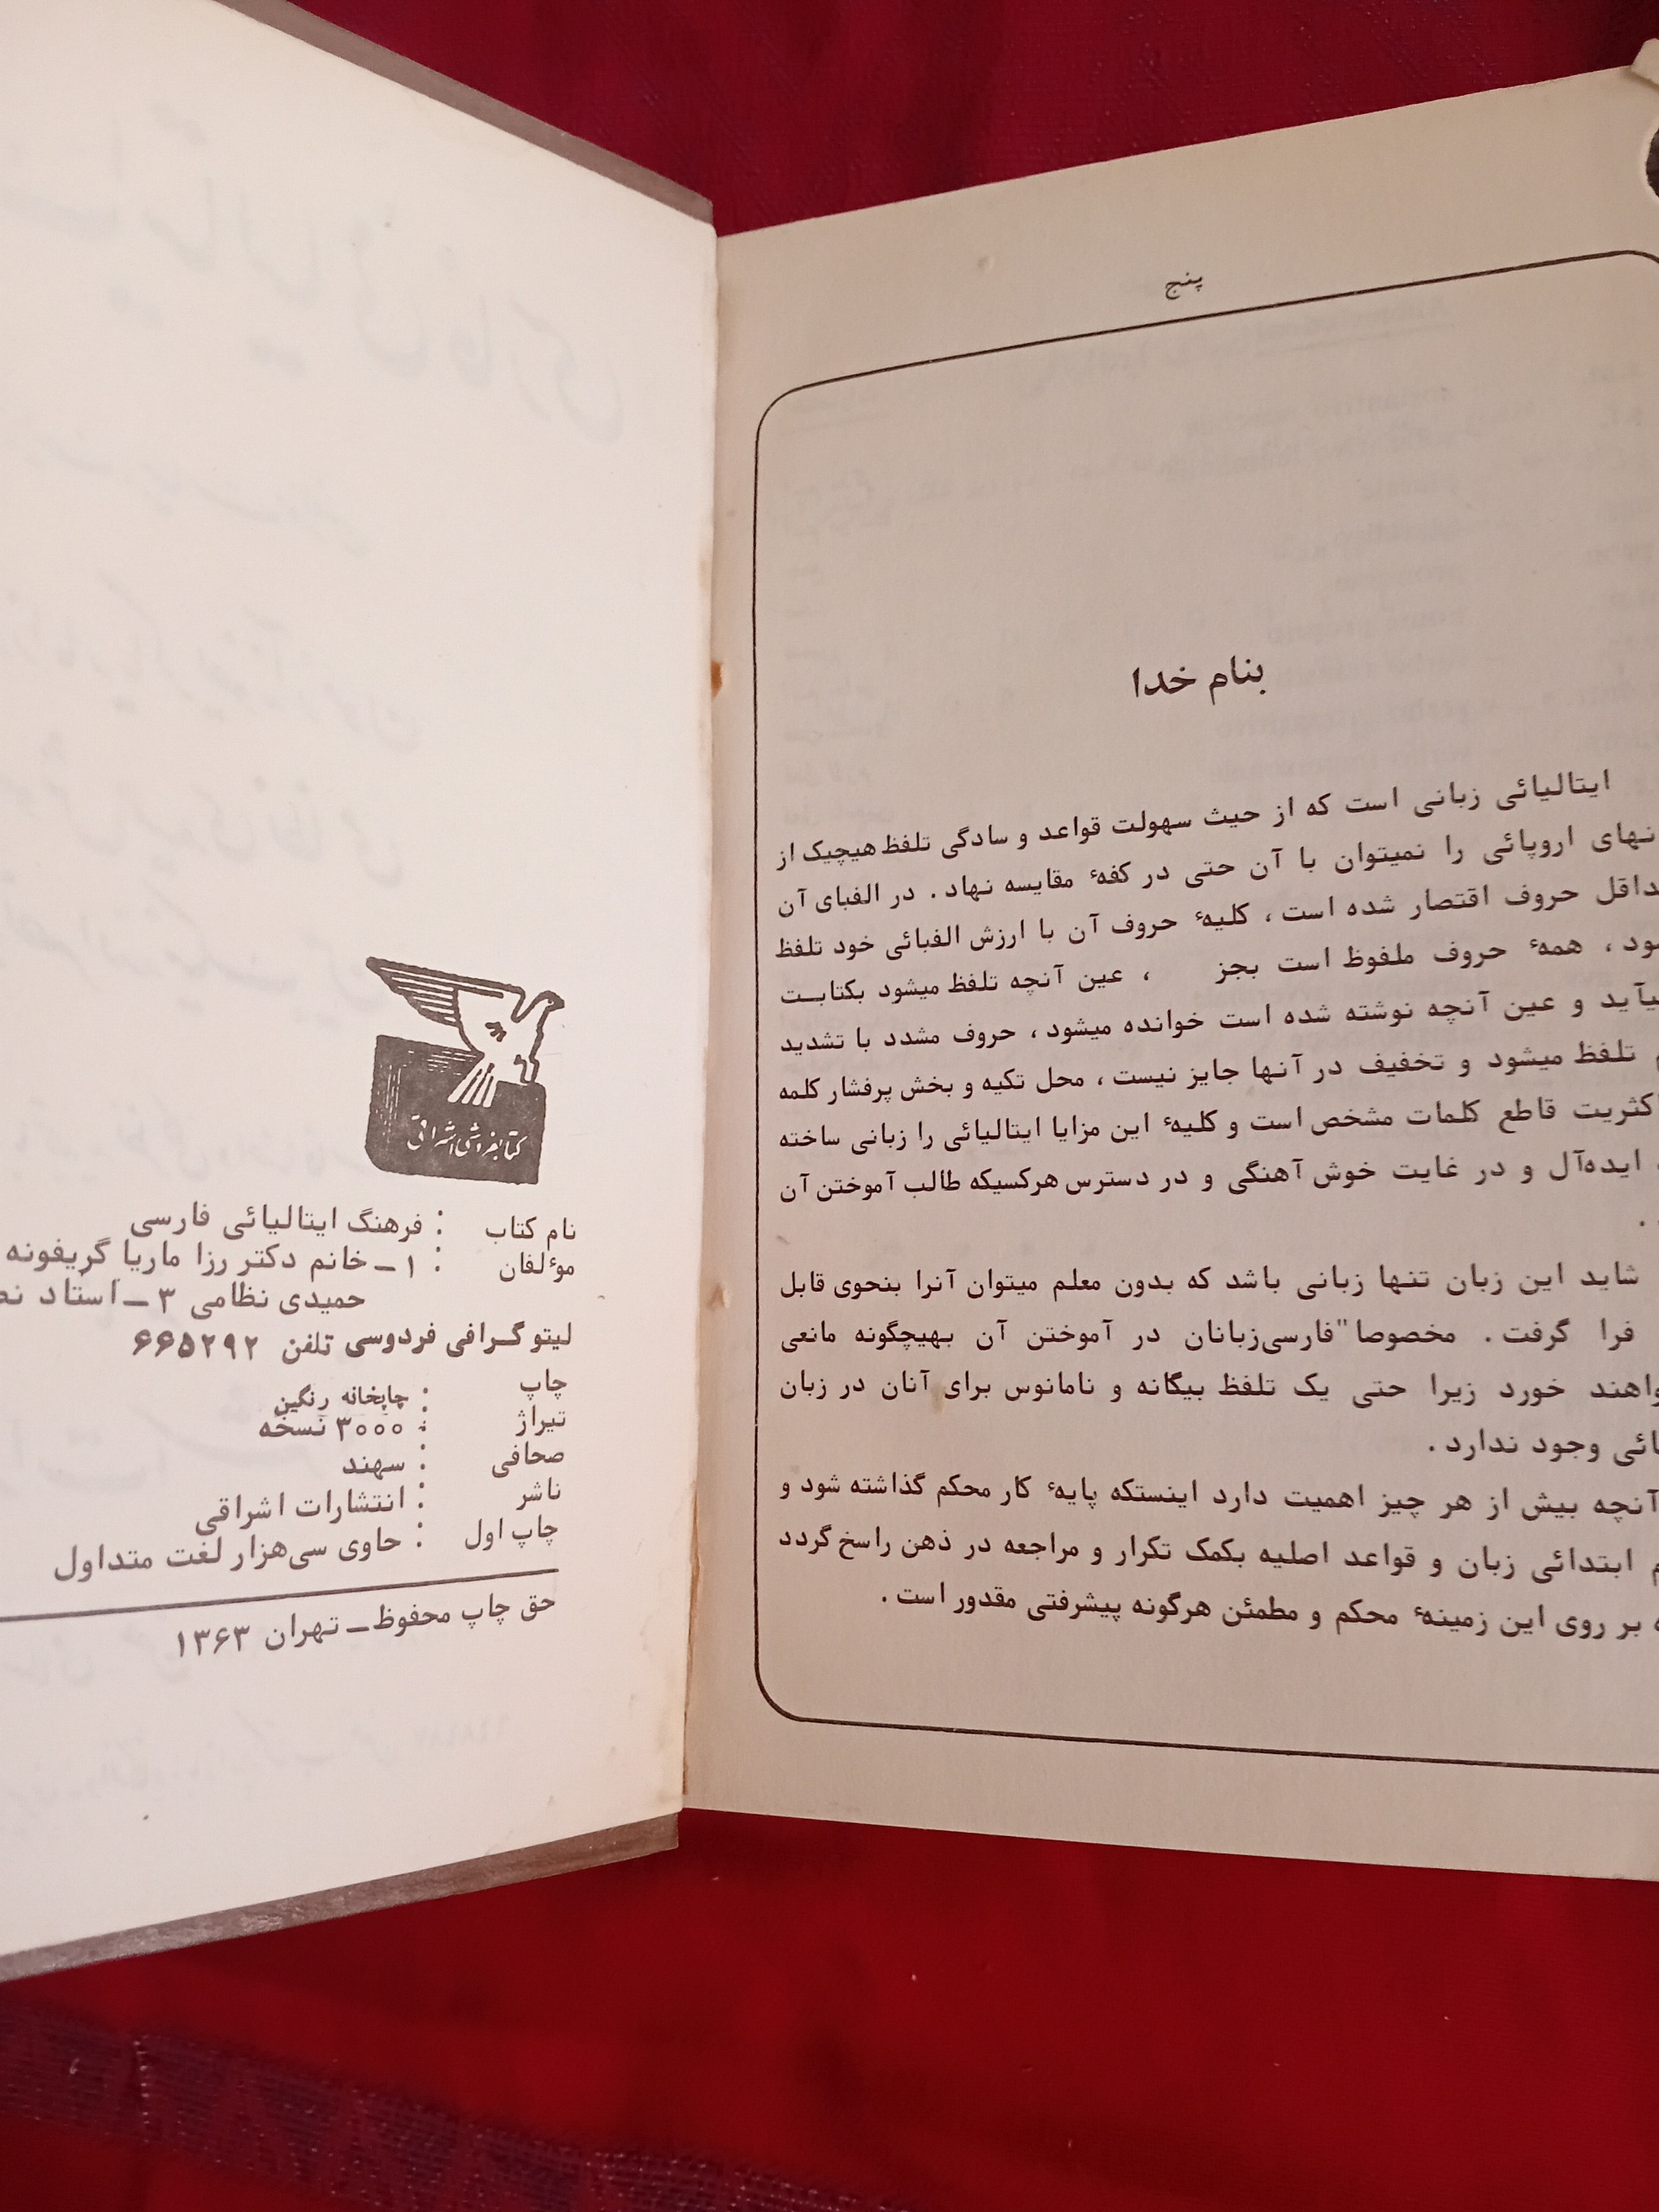 پنج
بنام خدا
ایتالیائی زبانی است که از حیث سهولت قواعد و سادگی تلفظ هیچیک از
اروپائی را نمیتوان با آن حتی در کفهٔ مقایسه نهاد . در الفبای آن
حروف اقتصار شده است ، کلیهٔ حروف آن با ارزش الفبائی خود تلفظ
، همهٔ حروف ملفوظ است بجز ، عین آنچه تلفظ میشود بکتابت
و عین آنچه نوشته شده است خوانده میشود ، حروف مشدد با تشدید
تلفظ میشود و تخفیف در آنها جایز نیست ، محل تکیه و بخش پرفشار کلمه
قاطع کلمات مشخص است و کلیهٔ این مزایا ایتالیائی را زبانی ساخته
ایده‌آل و در غایت خوش آهنگی و در دسترس هرکسیکه طالب آموختن آن
.
شاید این زبان تنها زبانی باشد که بدون معلم میتوان آنرا بنحوی قابل
فرا گرفت . مخصوصا" فارسی‌زبانان در آموختن آن بهیچگونه مانعی
خورد زیرا حتی یک تلفظ بیگانه و نامانوس برای آنان در زبان
وجود ندارد .
آنچه بیش از هر چیز اهمیت دارد اینستکه پایهٔ کار محکم گذاشته شود و
ابتدائی زبان و قواعد اصلیه بکمک تکرار و مراجعه در ذهن راسخ گردد
بر روی این زمینهٔ محکم و مطمئن هرگونه پیشرفتی مقدور است .
کتابفروشی اشراقی
نام کتاب : فرهنگ ایتالیائی فارسی
موٴلفان : ۱ – خانم دکتر رزا ماریا گریفونه
حمیدی نظامی ۳ – استاد
لیتوگرافی فردوسی تلفن ۶۶۵۲۹۲
چاپ : چاپخانه رنگین
تیراژ : ۳۰۰۰ نسخه
صحافی : سهند
ناشر : انتشارات اشراقی
چاپ اول : حاوی سی‌هزار لغت متداول
حق چاپ محفوظ – تهران ۱۳۶۳